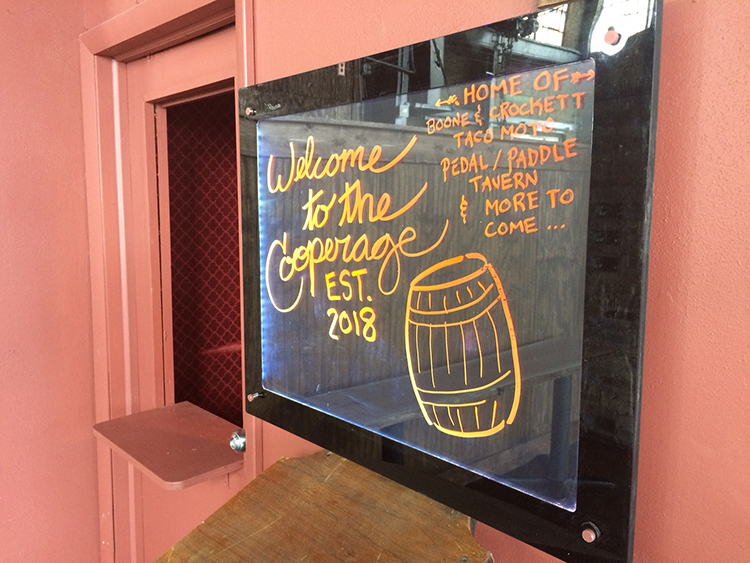 Welcome
to the
Cooperage
EST.
2018
HOME OF
BOONE & CROCKETT
TACO MOTO
PEDAL / PADDLE
TAVERN
& MORE TO
COME ...